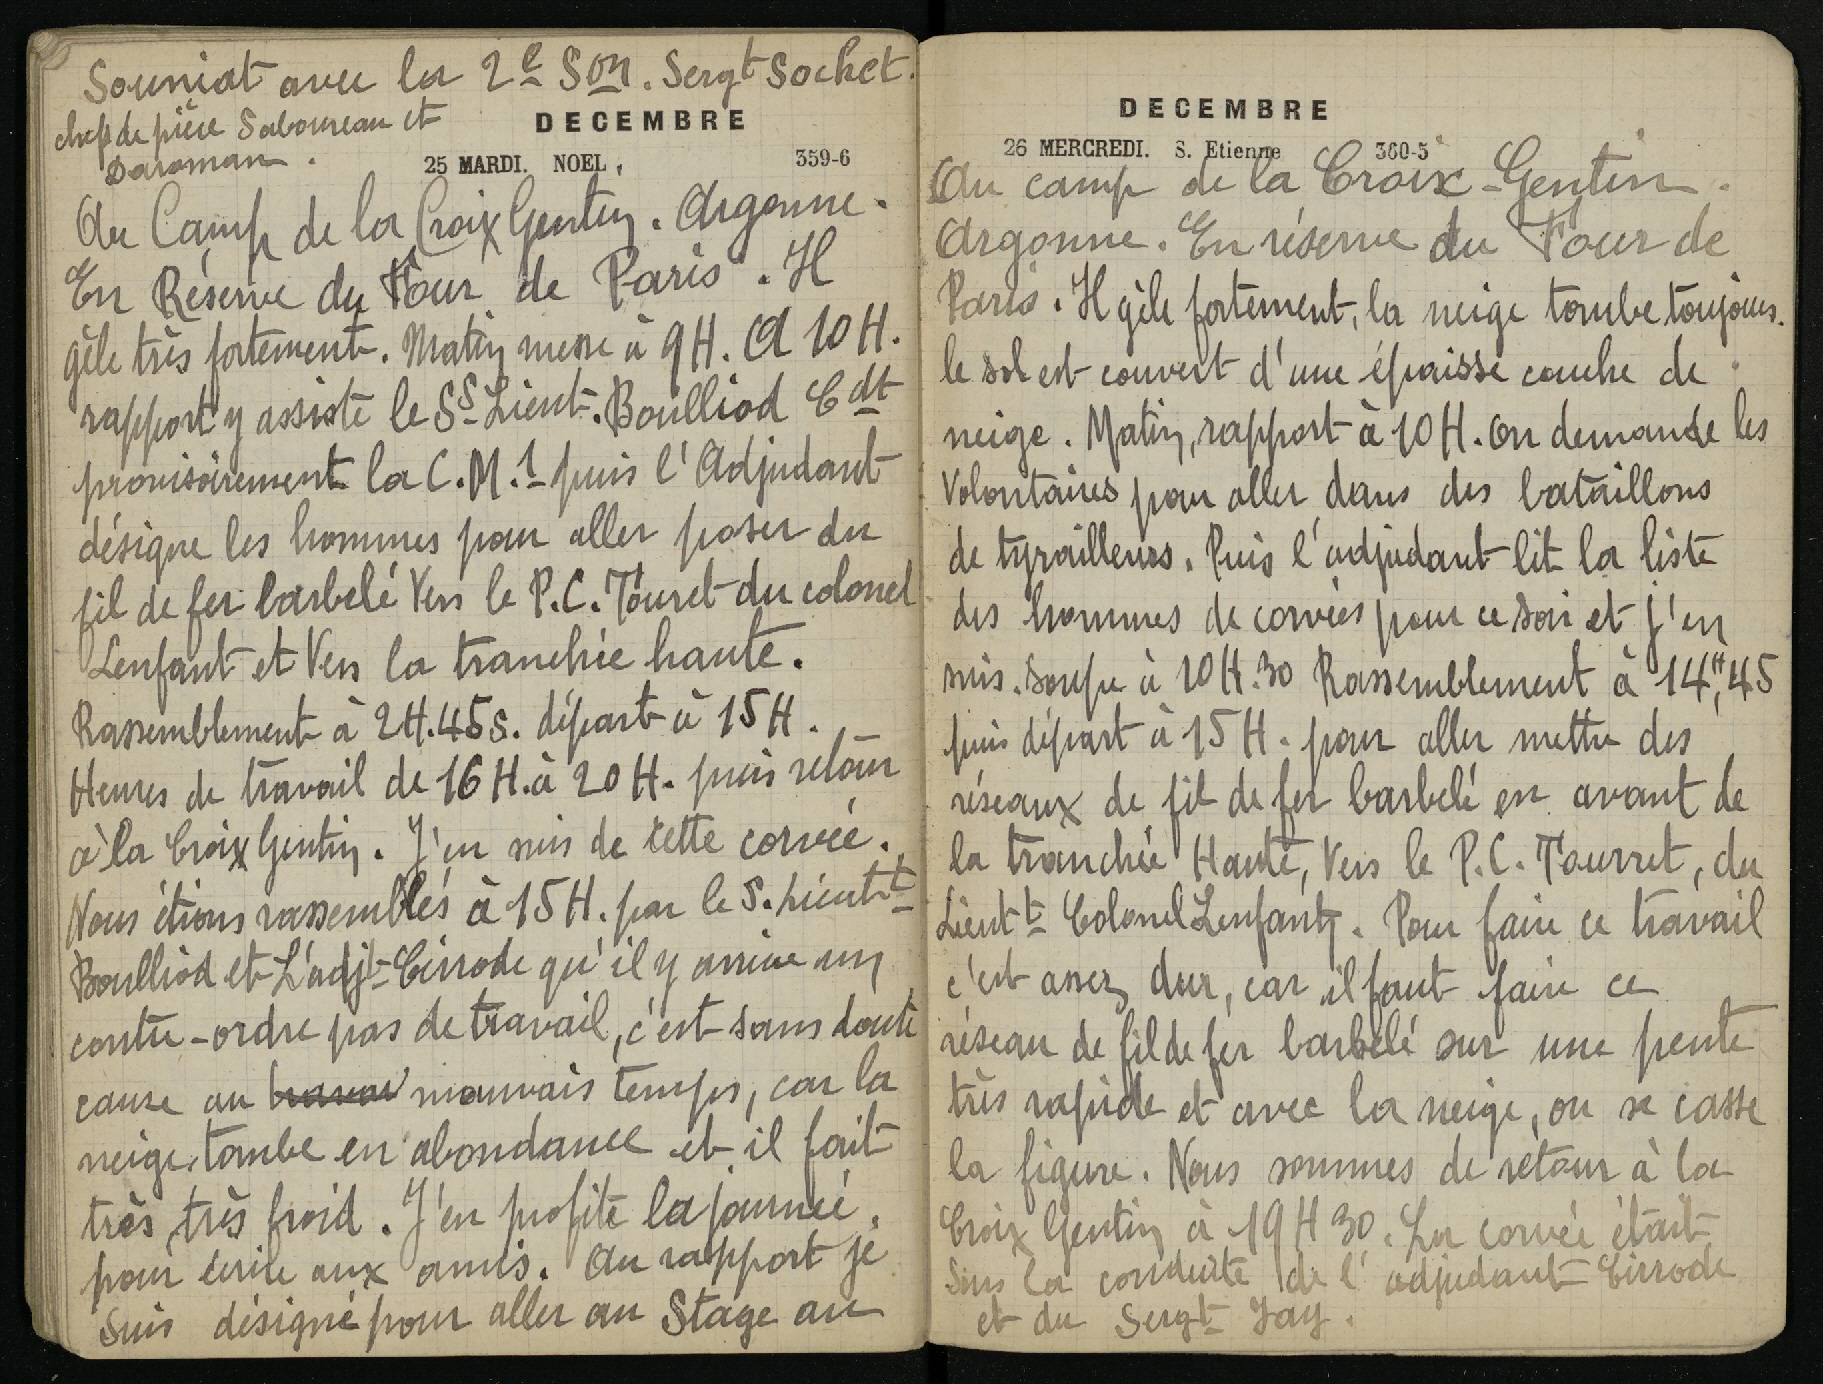 Souniat avec la 2e Son. Sergt Sochet.
chefs de pièce Saboureau et
Daroman.
DECEMBRE
25 MARDI. NOEL. 359-6
Au Camp de la Croix Gentin. Argonne.
En Réserve du Four de Paris. Il
gèle très fortement. Matin messe à 9H. A 10H.
rapport y assiste le Ss Lieut. Boulliod Cdt
provisoirement la C.M.1 puis l'Adjudant
désigne les hommes pour aller poser du
fil de fer barbelé Vers le P.C. Touret du colonel
Lenfant et Vers la tranchée haute.
Rassemblement à 2H.45 s. départ à 15H.
Heures de travail de 16H. à 20H. puis retour
à la Croix Gentin. J'en suis de cette corvée.
Nous étions rassemblés à 15H. par le S. Lieutt
Boulliod et L'adjt Cirrode qu'il y arrive un
contre-ordre pas de travail, c'est sans doute
cause au travai mauvais temps, car la
neige tombe en abondance et il fait
très, très froid. J'en profite la journée
pour écrire aux amis. Au rapport je
suis désigné pour aller au Stage au
DECEMBRE
26 MERCREDI. S. Etienne 360-5
Au camp de la Croix-Gentin.
Argonne. En réserve du Four de
Paris. Il gèle fortement, la neige tombe toujours.
le sol est couvert d'une épaisse couche de
neige. Matin, rapport à 10H. On demande les
Volontaires pour aller dans des bataillons
de tyrailleurs. Puis l'adjudant lit la liste
des hommes de corvées pour ce soir et j'en
suis. Soupe à 10H.30 Rassemblement à 14H,45
puis départ à 15H. pour aller mettre des
réseaux de fil de fer barbelé en avant de
la tranchée Haute, Vers le P.C. Tourret, du
Lieutt Colonel Lenfant. Pour faire ce travail
c'est assez dur, car il faut faire ce
réseau de fil de fer barbelé sur une pente
très rapide et avec la neige, on se casse
la figure. Nous sommes de retour à la
Croix Gentin à 19H30. La corvée était
sous la conduite de l'adjudant Cirrode
et du Sergt Jay.